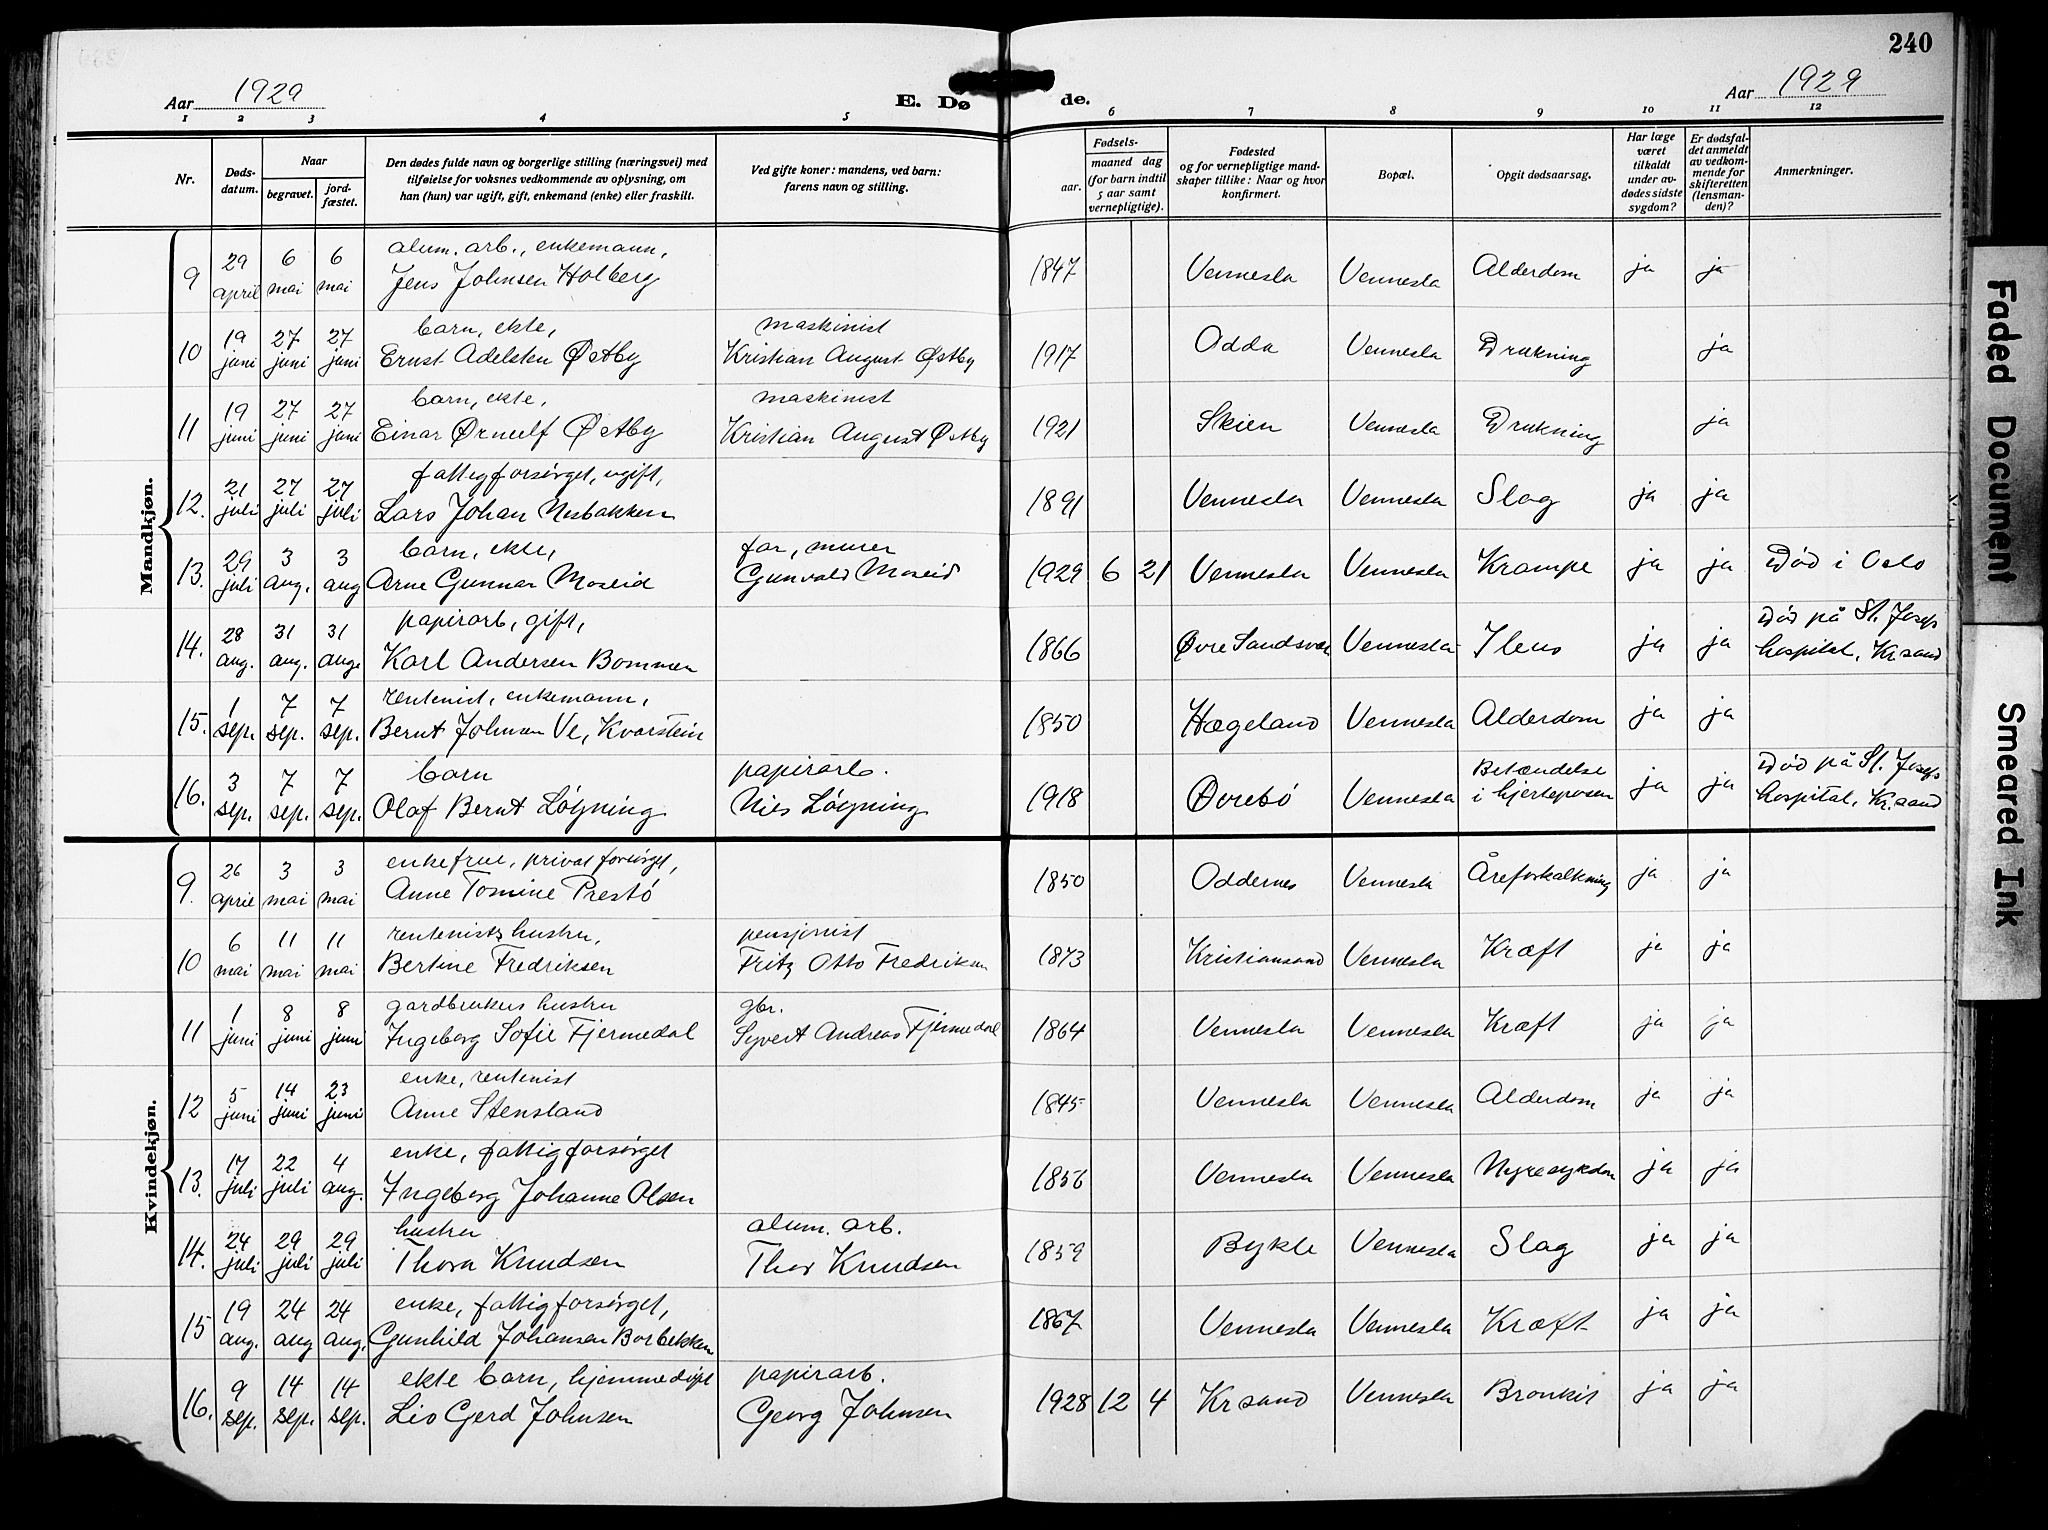 240
Aar 1929
E. Dø de.
Aar 1929
1 2 3 4 5 6 7 8 9 10 11 12
Nr.
Døds-
datum.
Naar
begravet.
jord-
fæstet.
Den dødes fulde navn og borgerlige stilling (næringsvei) med
tilføielse for voksnes vedkommende av oplysning, om
han (hun) var ugift, gift, enkemand (enke) eller fraskilt.
Ved gifte koner: mandens, ved barn:
farens navn og stilling.
Fødsels-
aar.
maaned dag
(for barn indtil
5 aar samt
vernepligtige).
Fødested
og for vernepligtige mand-
skaper tillike: Naar og hvor
konfirmert.
Bopæl.
Opgit dødsaarsag.
Har læge
været
tilkaldt
under av-
dødes sidste
sygdom?
Er dødsfal-
det anmeldt
av vedkom-
mende for
skifteretten
(lensman-
den)?
Anmerkninger.
Mandkjøn.
alum. arb., enkemann,
9 29 april 6 mai 6 mai Jens Johnsen Holberg 1847 Vennesla Vennesla Alderdom ja ja
barn, ekte, maskinist
10 19 juni 27 juni 27 juni Ernst Adelsten Østby Kristian August Østby 1917 Odda Vennesla Drukning ja
barn, ekte, maskinist
11 19 juni 27 juni 27 juni Einar Ørnulf Østby Kristian August Østby 1921 Skien Vennesla Drukning ja
fattigforsörget, ugift,
12. 21 juli 27 juli 27 juli Lars Johan Nesbakken 1891 Vennesla Vennesla Slag ja ja
barn, ekte, far, murer
13. 29 juli 3 aug. 3 aug Arne Gunnar Moseid Gunvald Moseid 1929 6 21 Vennesla Vennesla Krampe ja ja Död i Oslo
papirarb, gift,
14. 28 aug. 31 aug. 31 aug Karl Andersen Bommen 1866 Øvre Sandsvær Vennesla Ileus ja ja Död på St. Josefs
hospital, Kr.sand
rentenist, enkemann,
15. 1 sep. 7 sep. 7 sep. Bernt Johnsen Ve, Kvarstein 1850 Hægeland Vennesla Alderdom ja ja
barn papirarb.
16. 3 sep. 7 sep. 7 sep. Olaf Bernt Løyning Nils Løyning 1918 Øvrebö Vennesla Betændelse
i hjerteposen ja ja Död på St. Josefs
hospital, Kr.sand
Kvindekjøn.
enkefrue, privat forsörget,
9. 26 april 3 mai 3 mai Anne Tomine Prestö 1850 Oddernes Vennesla Åreforkalkning ja ja
rentenists hustru, pensjonist
10 6 mai 11 mai 11 mai Bertine Fredriksen Fritz Otto Fredriksen 1873 Kristiansand Vennesla Kræft ja ja
gardbrukers hustru gbr.
11 1 juni 8 juni 8 juni Ingeborg Sofie Fjermedal Syvert Andreas Fjermedal 1864 Vennesla Vennesla Kræft ja ja
enke, rentenist
12 5 juni 14 juni 23 juni Anne Stensland 1845 Vennesla Vennesla Alderdom ja ja
enke, fattigforsörget
13. 17 juli 22 juli 4 aug. Ingeborg Johanne Olsen 1856 Vennesla Vennesla Nyresykdom ja ja
hustru alum. arb.
14. 24 juli 29 juli 29 juli Thora Knudsen Thor Knudsen 1859 Bykle Vennesla Slag ja ja
enke, fattigforsörget,
15 19 aug. 24 aug 24 aug. Gunhild Johansen Borbekken 1867 Vennesla Vennesla Kræft ja ja
ekte barn, hjemmedöpt papirarb.
16. 9 sep. 14 sep. 14 sep. Liv Gerd Johnsen Georg Johnsen 1928 12 4 Kr sand Vennesla Bronkit ja ja
Faded Document
Smeared Ink